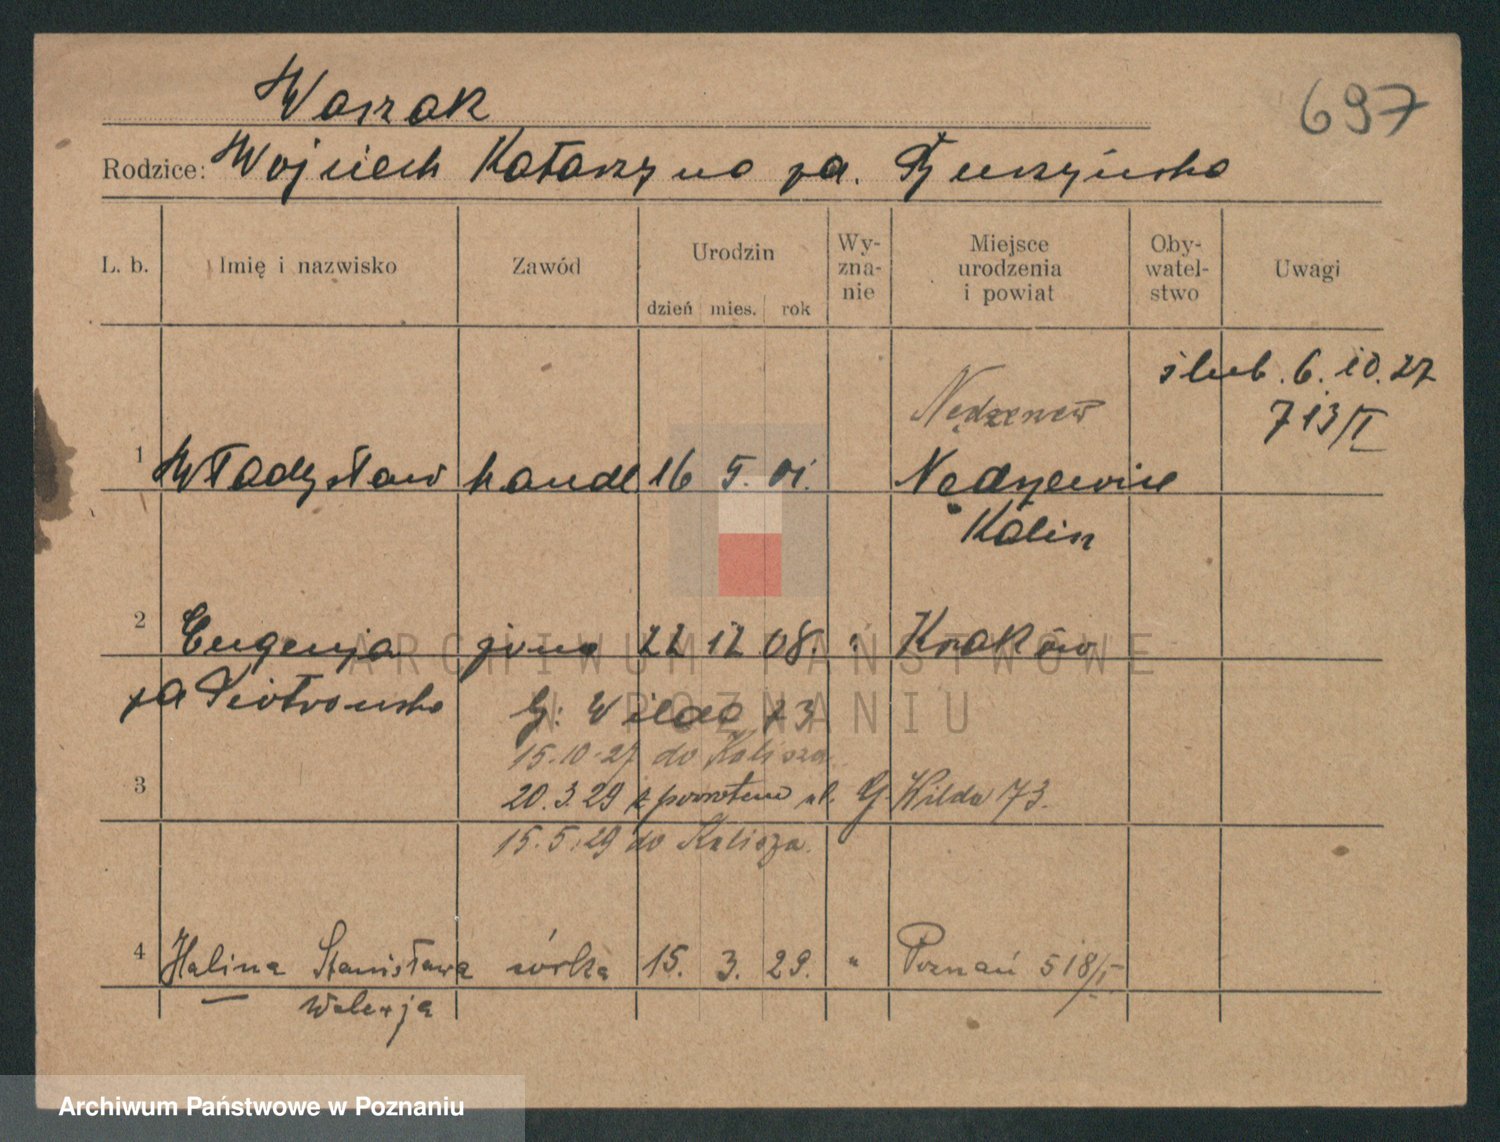 Waszak
697
Rodzice: Wojciech Katarzyna za.
L. b. Imię i nazwisko Zawód Urodzin dzień mies. rok Wy-zna-nie Miejsce urodzenia i powiat Oby-watel-stwo Uwagi
ślub. 6.10.27
713/I
1 Władysław handl. 16 5. 01.
Kalisz
2 Eugenja żona 22 12 08. " Kraków
za Piotrowska G: Wilda 73
15.10.27 do Kalisza
3 20.3.29 z powrotem ul. G. Wilda 73.
15.5.29 do Kalisza.
4 Halina Stanisława córka 15. 3. 29. " Poznań 518/I
Walerja
ARCHIWUM PAŃSTWOWE
W POZNANIU
Archiwum Państwowe w Poznaniu